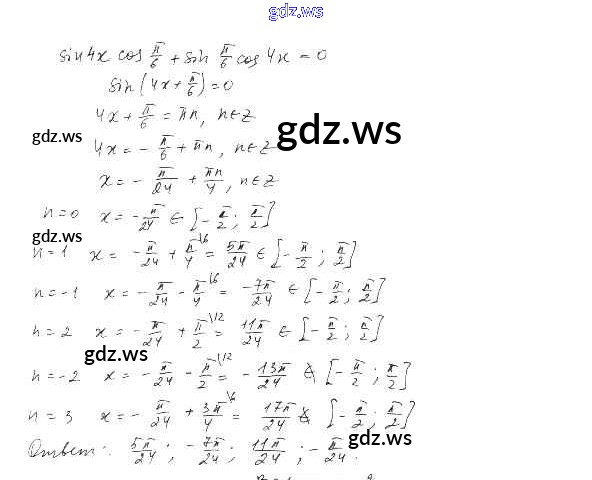 gdz.ws
sin4x cos π/6 + sin π/6 cos 4x = 0
sin(4x + π/6) = 0
4x + π/6 = πn, n∈Z
gdz.ws
gdz.ws
4x = - π/6 + πn, n∈Z
x = - π/24 + πn/4, n∈Z
n=0 x = - π/24 ∈ [- π/2; π/2]
gdz.ws
n=1 x = - π/24 + π/4 \6 = 5π/24 ∈ [- π/2; π/2]
n=-1 x = - π/24 - π/4 \6 = - 7π/24 ∈ [- π/2; π/2]
n=2 x = - π/24 + π/2 \12 = 11π/24 ∈ [- π/2; π/2]
gdz.ws
n=-2 x = - π/24 - π/2 \12 = - 13π/24 ∉ [- π/2; π/2]
n=3 x = - π/24 + 3π/4 \6 = 17π/24 ∉ [- π/2; π/2]
gdz.ws
Ответ: 5π/24; - 7π/24; 11π/24; - π/24.